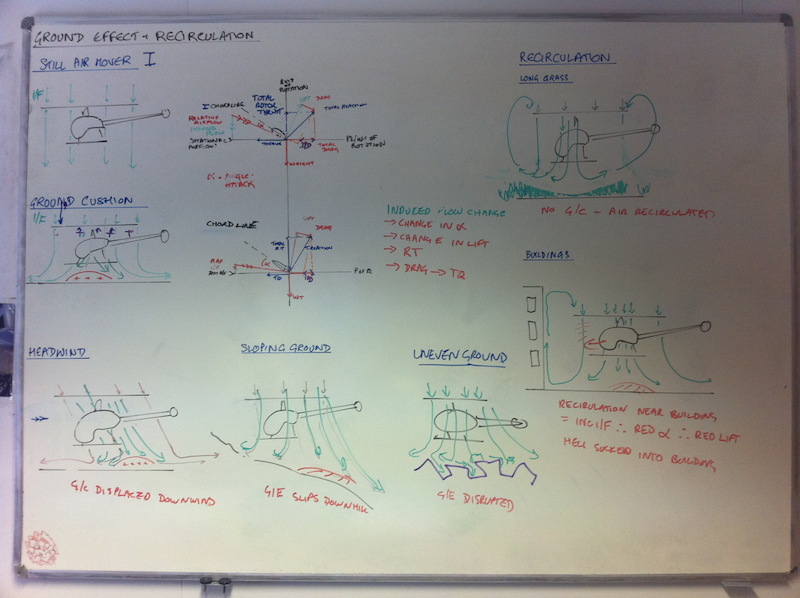 GROUND EFFECT + RECIRCULATION
STILL AIR HOVER I
I/F
GROUND CUSHION
I/F
AXIS OF
ROTATION
TOTAL
ROTOR
THRUST
LIFT
DRAG
TOTAL REACTION
CHORDLINE
RELATIVE AIRFLOW
ROTATIONAL
AIRFLOW
PLANE OF
ROTATION
TORQUE
TOTAL
DRAG
WEIGHT
α = ANGLE OF
ATTACK
CHORD LINE
LIFT
DRAG
TOTAL
RT
T REACTION
RAF
α
TQ
WT
INDUCED FLOW CHANGE
→ CHANGE IN α
→ CHANGE IN LIFT
→ RT
→ DRAG → TQ
RECIRCULATION
LONG GRASS
NO G/C - AIR RECIRCULATED
BUILDINGS
RECIRCULATION NEAR BUILDING
= INC I/F ∴ RED α ∴ RED LIFT
HELI SUCKED INTO BUILDING
HEADWIND
G/C DISPLACED DOWNWIND
SLOPING GROUND
G/E SLIPS DOWNHILL
UNEVEN GROUND
G/E DISRUPTED